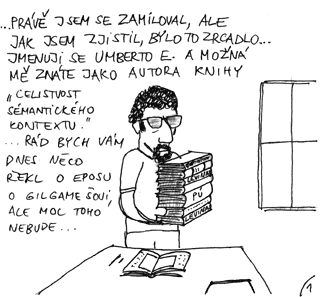 ...PRÁVĚ JSEM SE ZAMILOVAL, ALE
JAK JSEM ZJISTIL, BYLO TO ZRCADLO...
JMENUJI SE UMBERTO E. A MOŽNÁ
MĚ ZNÁTE JAKO AUTORA KNIHY
„CELISTVOST
SÉMANTICKÉHO
KONTEXTU."
...RÁD BYCH VÁM
DNES NĚCO
ŘEKL O EPOSU
O GILGAMEŠOVI,
ALE MOC TOHO
NEBUDE...
PÚ
LEVINAS
1